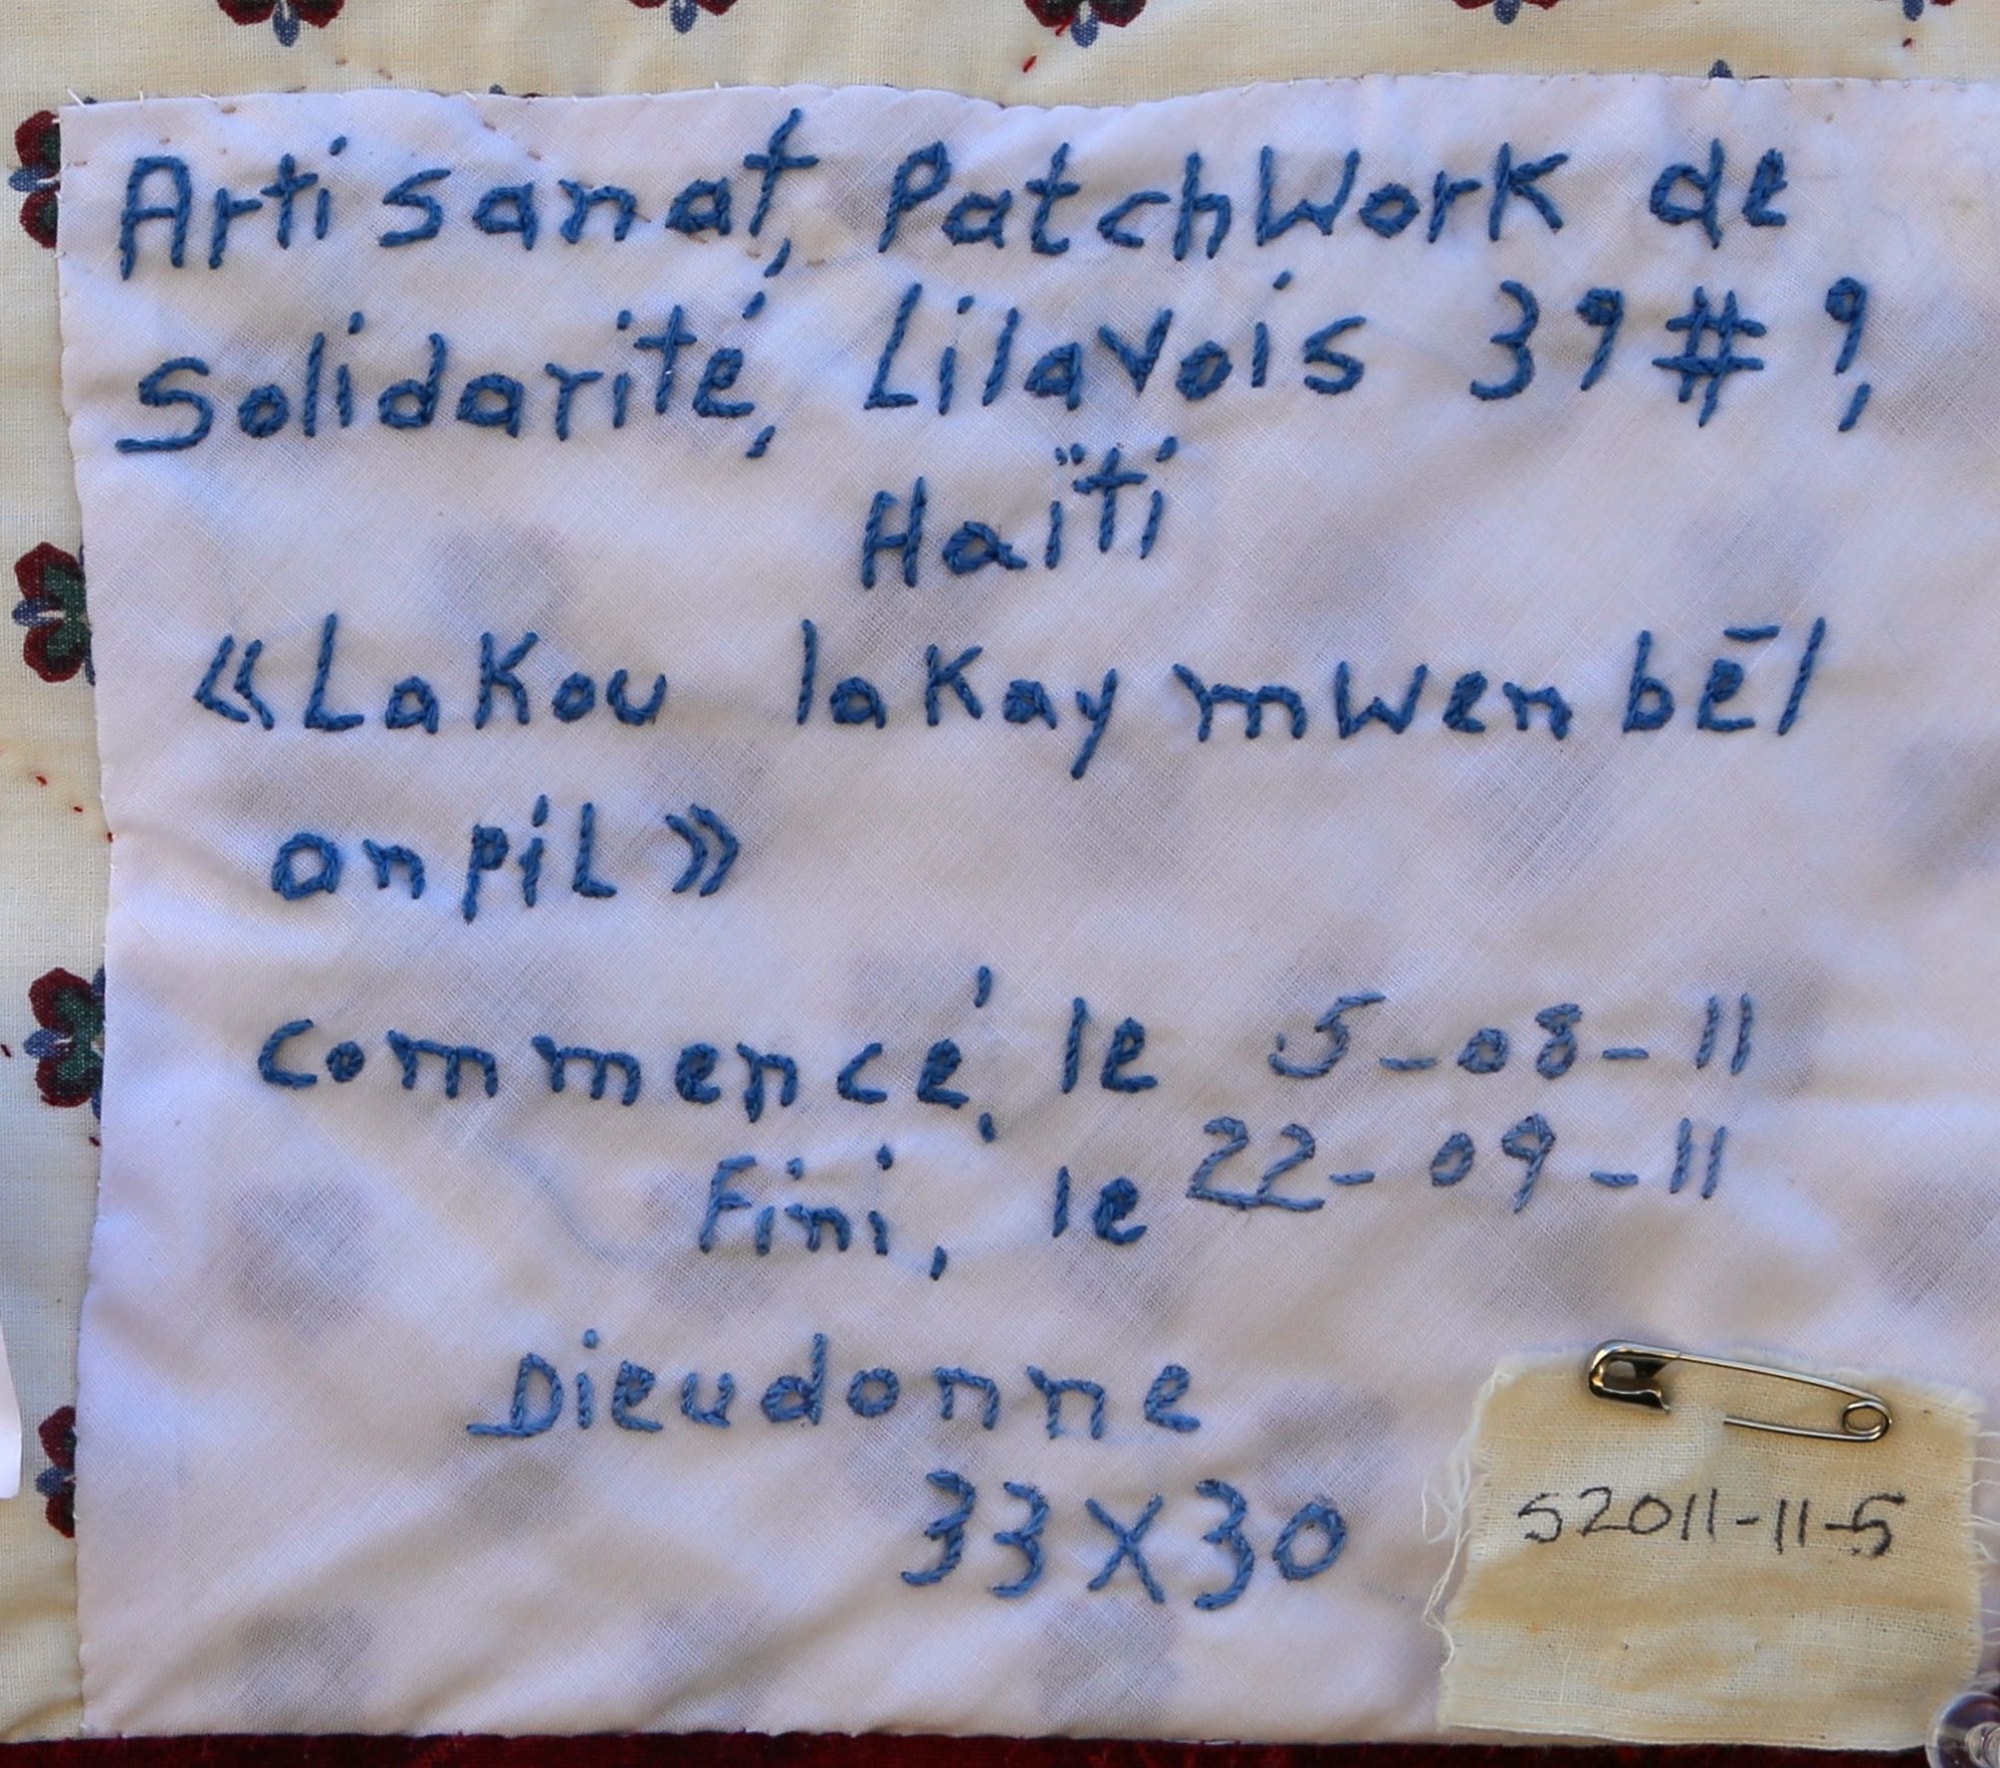 Artisanat, Patchwork de
Solidarité, Lilavois 39 # 9,
Haïti
«Lakou lakay mwen bēl
anpil»
commencé, le 5-08-11
Fini, le 22-09-11
Dieudonne
33X30
S2011-11-5